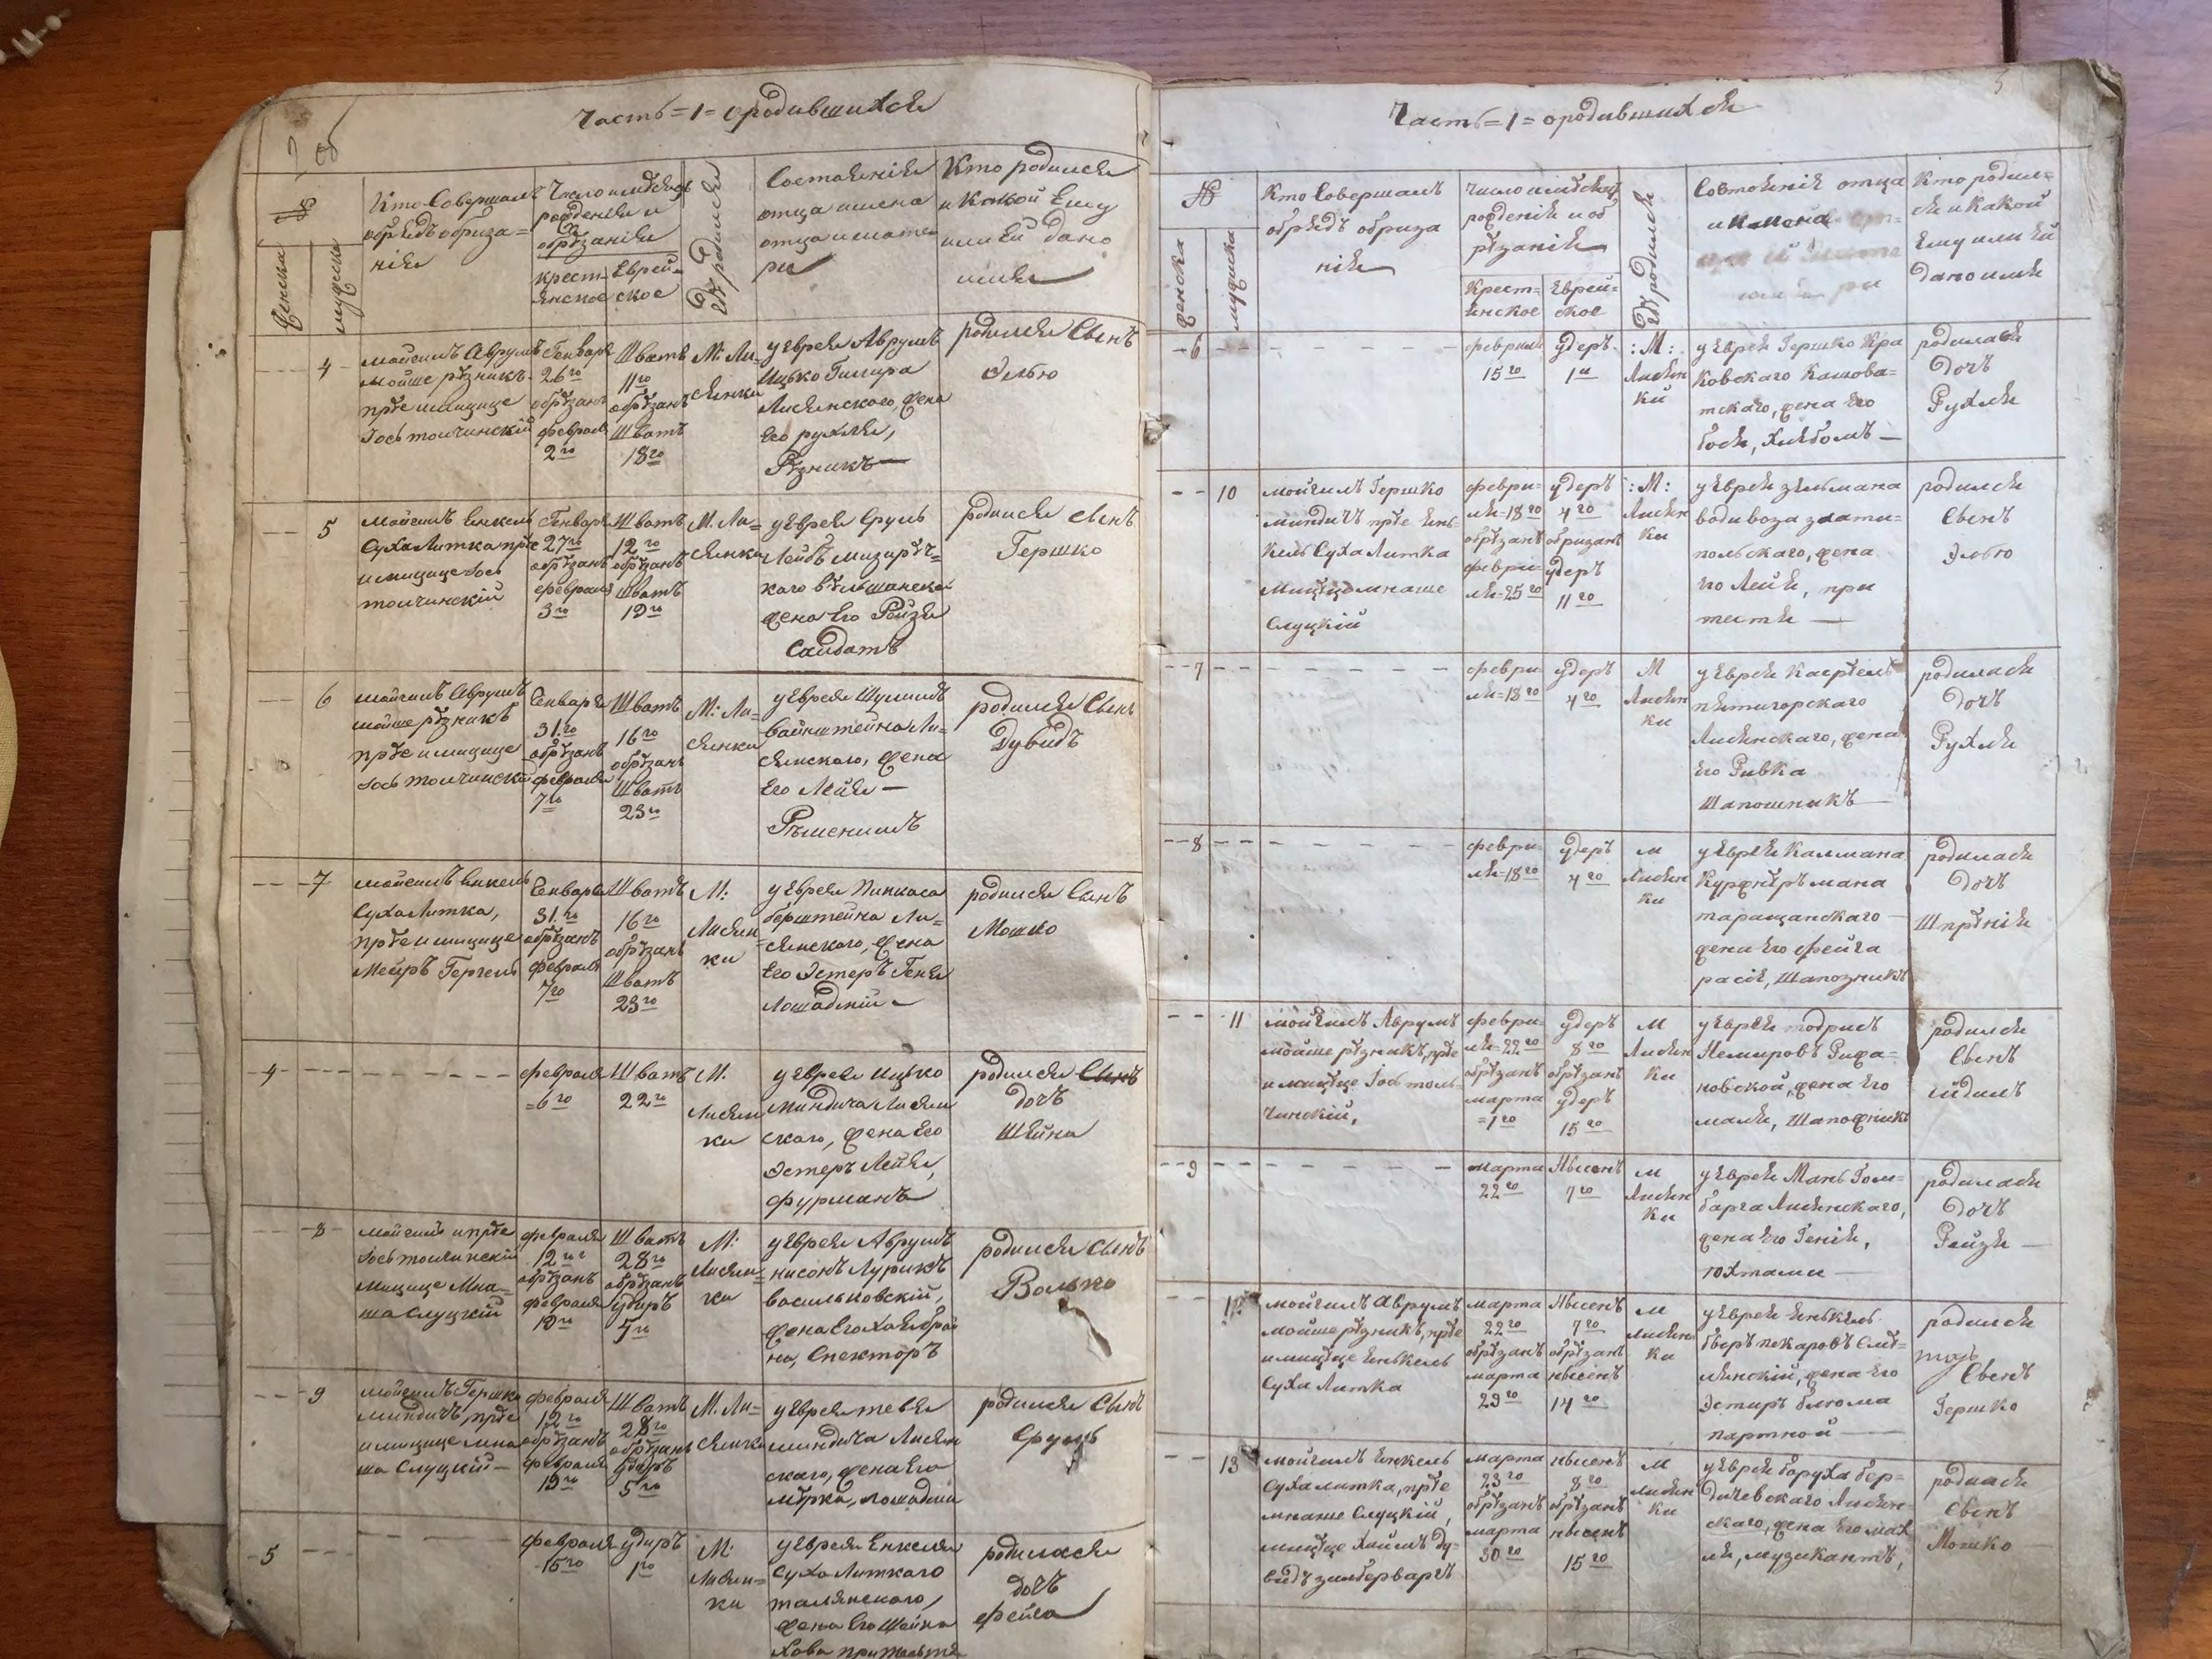 Часть = 1 = о родившихся
№
Женска
мужеска
Кто Совершалъ
обрядъ обреза=
нія
Число и мѣсяцъ
рожденія и
обрѣзанія
крест=
янское
Еврей=
ское
Гдѣ родился
Состояніе
отца имена
отца и мате
ри
Кто родился
и Какой Ему
или Ей дано
имя
4
мойгилъ Аврумъ
мойше рѣзникъ
прѣе имицице
Іось толчинскій
Генваря
26го
обрѣзанъ
февраля
2го
Шватъ
11го
обрѣзанъ
Шватъ
18го
М: Ли=
сянка
у Еврея Аврумъ
Ицько
Лисянского, жена
Его рухля,
Рѣзникъ
родился Сынъ
Элью
5
мойгилъ Енкель
СухаЛитка прѣе
имицице Іось
толчинскій
Генваря
27го
обрѣзанъ
февраля
3го
Шватъ
12го
обрѣзанъ
Шватъ
19го
М: Ли=
сянка
у Еврея Сруль
Лейбъ мизирѣч=
жена Его Рейзя
Салдатъ
родился Сынъ
Гершко
6
мойгилъ Аврумъ
мойше рѣзникъ
прѣе имицице
Іось толчински
Генваря
31го
обрѣзанъ
февраля
7го
Шватъ
16го
обрѣзанъ
Шватъ
23го
М: Ли=
сянка
у Еврея Шулимъ
вайнштейна Ли=
сянского, жена
Его Лейя —
родился Сынъ
Дувидъ
7
мойгилъ Енкель
СухаЛитка,
прѣе имицице
Мейръ Гергель
Генваря
31го
обрѣзанъ
февраля
7го
Шватъ
16го
обрѣзанъ
Шватъ
23го
М:
Лисян=
ки
у Еврея Пинкаса
берштейна Ли=
сянского, жена
Его Эстеръ Геня
родился Сынъ
Мошко
4
февраля
=6го
Шватъ
22го
М.
Лисян
ки
у Еврея Ицько
миндича Лисян
ского, жена Его
Эстеръ Лейя,
фурманъ
родился Сынъ
дочъ
Шейна
8
мойгилъ и прѣе
Іось толчинскій
мицице Мна=
ша Слуцкій
февраля
12го
обрѣзанъ
февраля
19го
Шватъ
28го
обрѣзанъ
удиръ
5го
М:
Лисян=
ки
у Еврея Аврумъ
нисонъ Лурикъ
васильковскій,
Спекторъ
родился Сынъ
Волько
9
мойгилъ Гершко
миндичъ, прѣе
имицице мна
ша Слуцкій —
февраля
12го
обрѣзанъ
февраля
19го
Шватъ
28го
обрѣзанъ
удиръ
5го
М: Ли=
сянка
у Еврея тевя
миндича Лисян
ского, жена Его
мѣрка,
родился Сынъ
Сруль
5
февраля
15го
удиръ
1го
М:
Лисян=
ки
у Еврея Енкеля
СухоЛиткаго
талянского,
жена Его Шейна
Хова
родилася
дочъ
фейга
Часть = 1 = о родившихся
№
женска
мужеска
Кто Совершалъ
обрядъ обреза
нія
Число и мѣсяцъ
рожденія и об
рѣзанія
Крест=
янское
Еврей=
ское
Гдѣ родился
Состояніе отца
Кто родил=
ся и Какой
Ему или Ей
дано имя
6
февраля
15го
удеръ
1го
:М:
Лисян
ки
у Еврея Гершко Кра
ковского Кашова=
тскаго, жена Его
бося, Хлѣбомъ —
родилася
Дочъ
Рухля
10
мойгилъ Гершко
миндичъ прѣе Ень=
кель СухаЛитка
мицице мнаше
Слуцкій
февра=
ля=18го
обрѣзанъ
февра=
ля=25го
удеръ
4го
обризанъ
удеръ
11го
:М:
Лисян
ки
у Еврея зельмана
водивоза злати=
польскаго, жена
его Лейя, при
тестя —
родился
Сынъ
Эльо
7
февра
ля=18го
удеръ
4го
М
Лисян
ки
пятигорского
Лисянскаго, жена
Его Ривка
Шапошникъ
родилася
дочъ
Рухля
8
февра=
ля=18го
удеръ
4го
М
Лисян
ки
у Еврея Калмана
таращанскаго
жена Его фейга
рася, Шапозникъ
родилася
дочъ
Шпрѣня
11
мойгилъ Аврумъ
мойше рѣзникъ, прѣе
имицице Іось толь=
чинскій,
февра=
ля=22го
обрѣзанъ
марта
=1го
удеръ
8го
обрѣзанъ
удеръ
15го
М
Лисян
ки
у Еврея тодрисъ
Немировъ Рижа=
новской, жена Его
маля, Шапожникъ
родился
Сынъ
9
марта
22го
Нысенъ
7го
М
Лисян
ки
у Еврея Мань Гом=
барга Лисянскаго,
жена Его Геня,
родилася
дочъ
Рейзя
12
мойгилъ Аврумъ
мойше рѣзникъ, прѣе
имицице Енькель
СухаЛитка
марта
22го
обрѣзанъ
марта
29го
Нысенъ
7го
обрѣзанъ
нысенъ
14го
М
Лисян
ки
у Еврея Енькель
беръ пекаровъ Смѣ=
лянскій, жена Его
Эстиръ блюма
партной
родился
Сынъ
Гершко
13
мойгилъ Енькель
Сухалитка, прѣе
мнаше Слуцкій,
мицице Хаимъ Ду=
видъ зильберваргъ
марта
23го
обрѣзанъ
марта
30го
нысенъ
8го
обрѣзанъ
нысенъ
15го
М
Лисян
ки
у Еврея боруха бер=
дичевскаго Лисян=
скаго, жена Его мах
ля, музикантъ,
родился
Сынъ
Мошко